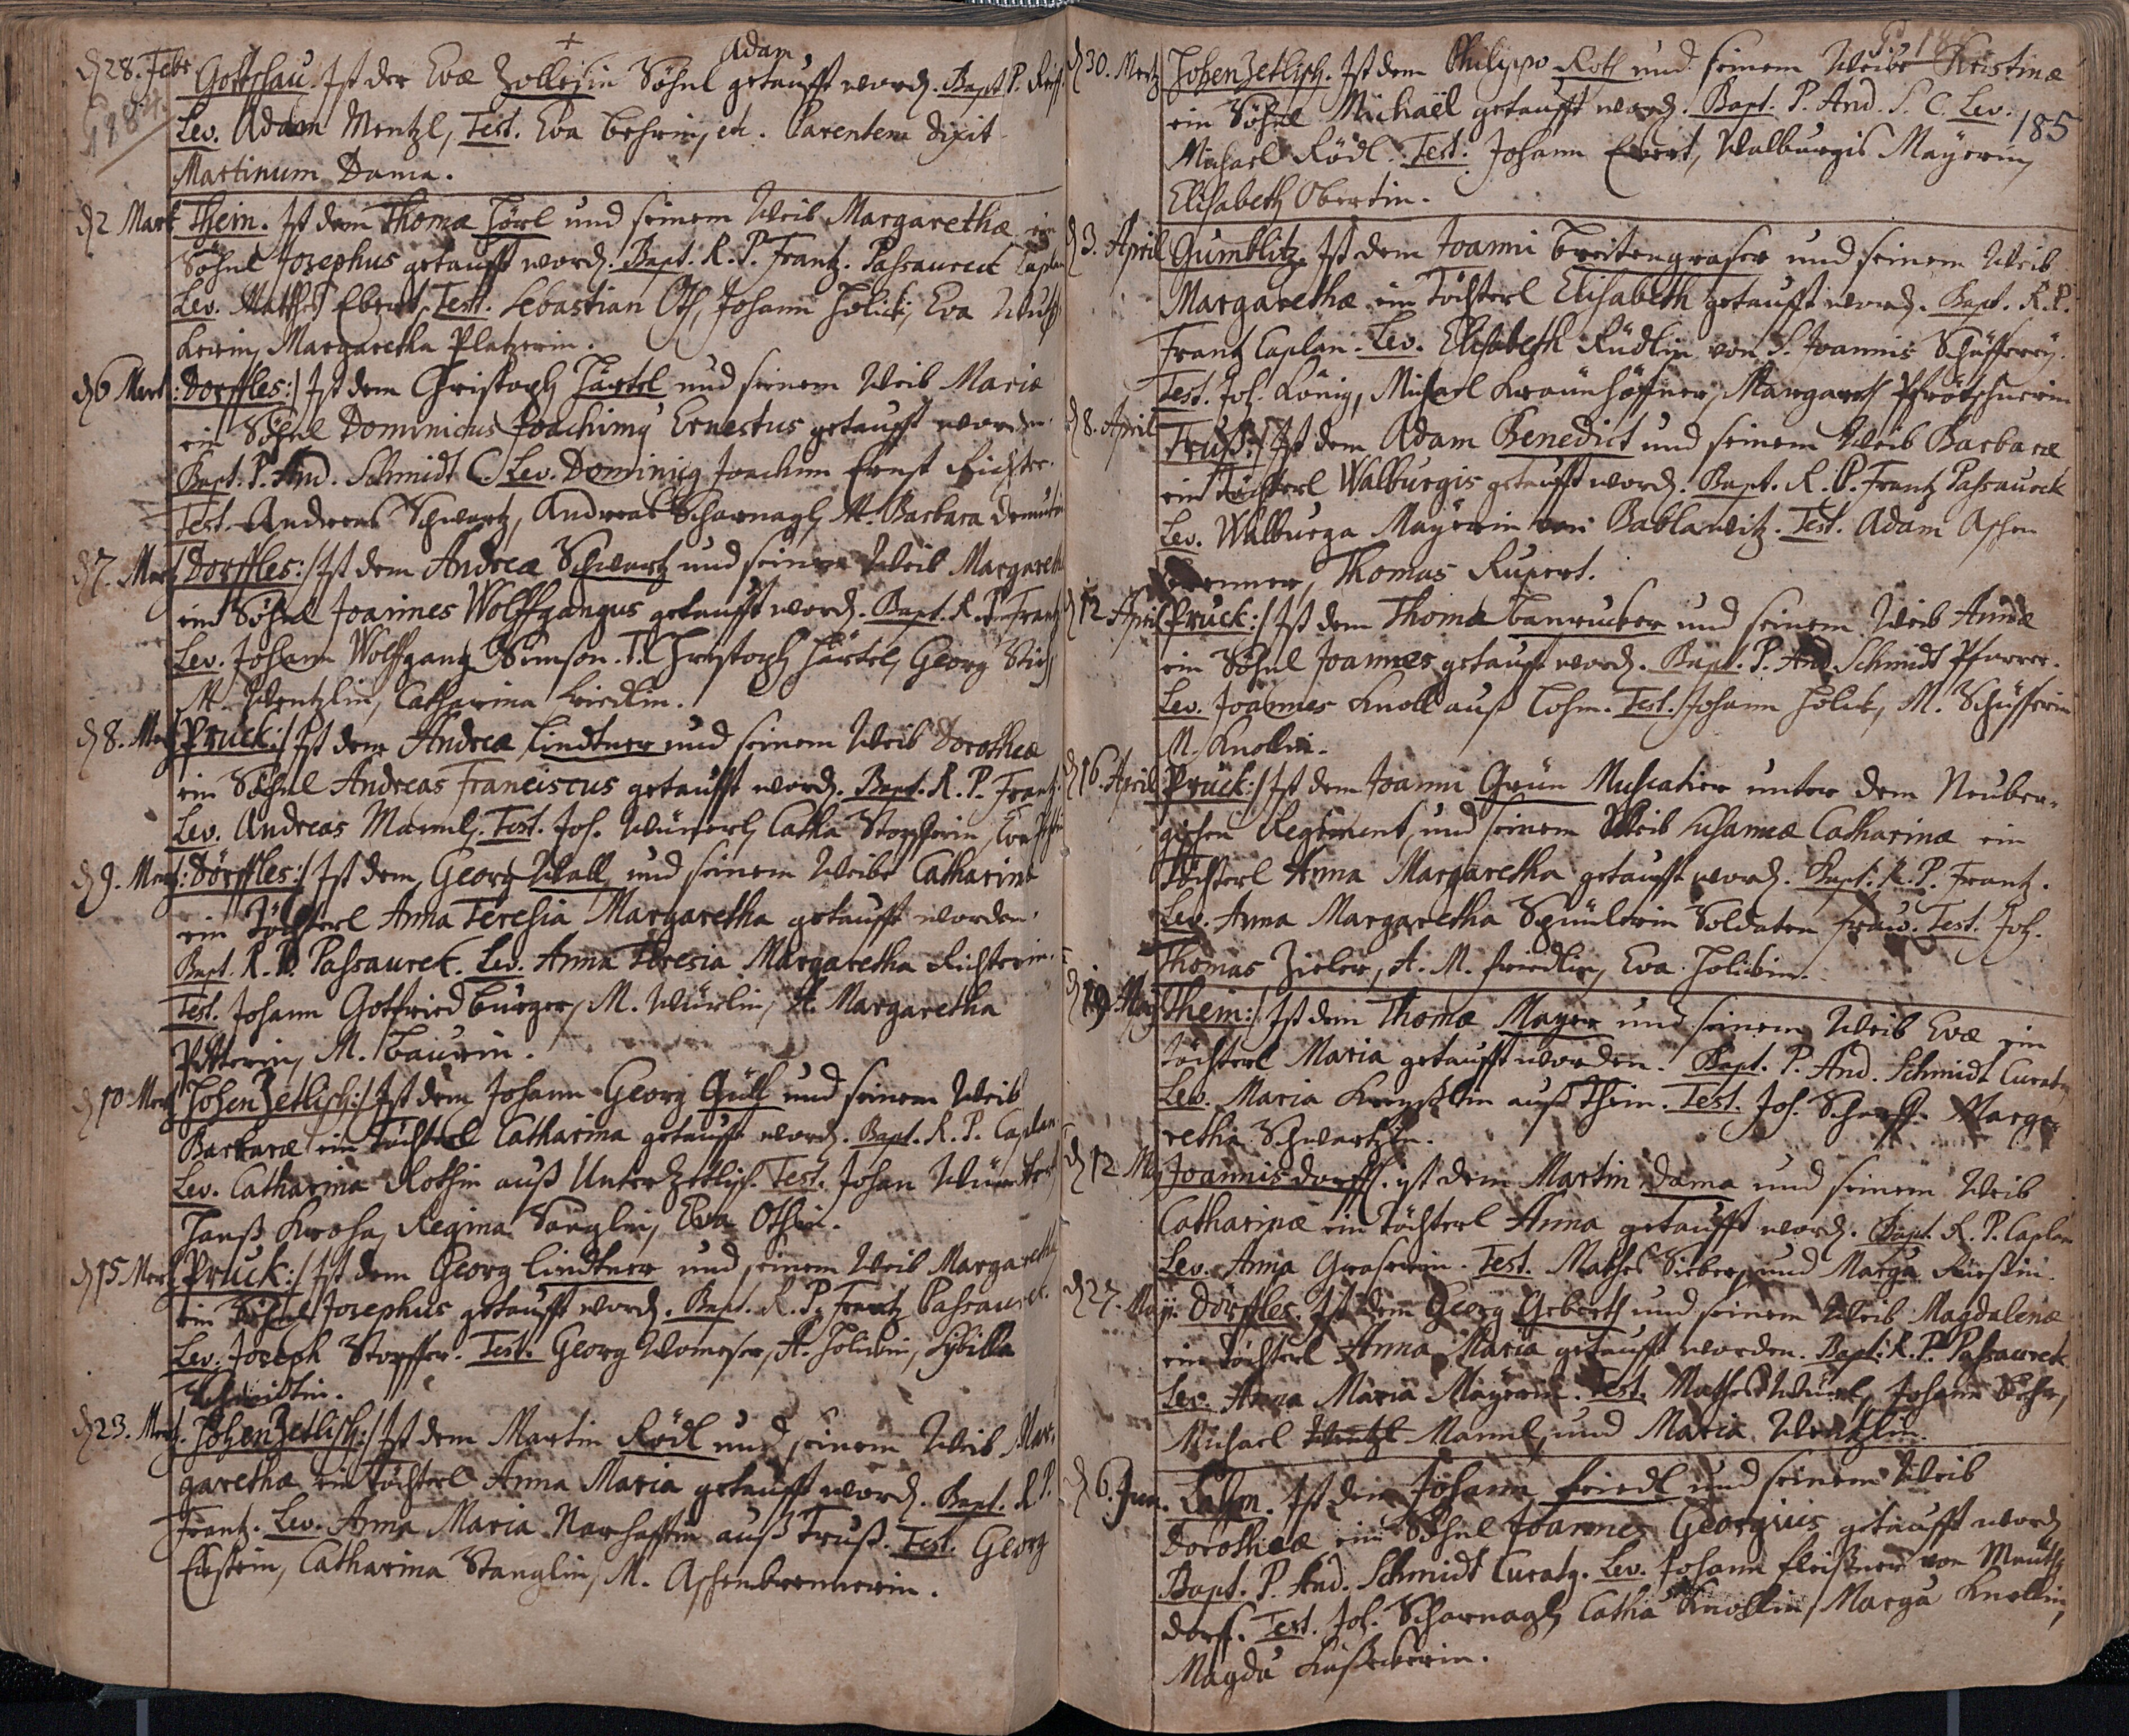 d 28. Febr. Gottschau. Ist der Evæ Zollerin Söhnl Adam getaufft word. Bapt. P.
Lev. Adam Mentzl, Test. Eva etc. Parentem dixit
Martinum Dama.
d 2 Mart Thein. Ist dem Thomæ Hörl und seinem Weib Margarethæ ein
Söhnl Josephus getaufft word. Bapt. R. P. Frantz. Passaureck Caplan
Lev. Matthes Ebert, Test. Sebastian Oth, Johann Holick, Eva
Margaretha Platzerin.
d 6 Mert :Dorffles:/ Ist dem Christoph Härtel und seinem Weib Mariæ
ein Söhnl Dominicus Joachimg Ernestus getaufft worden.
Bapt. P. And. Schmidt C. Lev. Dominicg Joachim Ernst Richter.
Test. Andreas Schwartz, Andreas Scharnagl, M. Barbara
d 7. Mertz Dorffles:/ Ist dem Andreæ Schwartz und seinem Weib Margareth
ein Söhnl Joannes Wolffgangus getaufft word. Bapt. R. P. Frantz
Lev. Johann Wolffgang Simson. T. Christoph Härtel, Georg
M. Wentzlin, Catharina
d 8. Mertz Pruck:/ Ist dem Andreæ Lindtner und seinem Weib Dorotheæ
ein Söhnl Andreas Franciscus getaufft word. Bapt. R. P. Frantz.
Lev. Andreas Mannl, Test. Joh. Würnerl, Catha Stopfferin, Eva
d 9. Mertz :Dörffles:/ Ist dem Georg Wall und seinem Weibe Catharinæ
ein Töchterl Anna Teresia Margaretha getaufft worden.
Bapt. R. P. Passaurek. Lev. Anna Theresia Margaretha Richterin.
Test. Johann Gottfried Burger, M. Würlin, A. Margaretha
M. Baurin.
d 10. Mertz HohenZetlisch:/ Ist dem Johann Georg Güll und seinem Weib
Barbaræ ein Töchterl Catharina getaufft word. Bapt. R. P. Caplan
Lev. Catharina Rothin auß UnterZetlisch. Test. Johan
Hanß Krosha, Regina Sänglin, Eva Othin.
d 15 Mertz Pruck:/ Ist dem Georg Lindtner und seinem Weib Margaretha
ein Söhnl Josephus getaufft word. Bapt. R. P. Frantz Passaurek.
Lev. Joseph Stopffer. Test. Georg A. Holickin, Sybilla
Schmidtin.
d 23. Mertz. HohenZetlisch:/ Ist dem Martin Rödl und seinem Weib Mar-
garethæ ein Töchterl Anna Maria getaufft word. Bapt. R. P.
Frantz. Lev. Anna Maria Narhafftin auß Truß. Test. Georg
Catharina Stanglin, M. Aschenbrennerin.
185
d 30. Mertz HohenZetlisch. Ist dem Philippo Roth und seinem Weibe Kristinæ
ein Söhnl Michaël getaufft word. Bapt. P. And. S. C. Lev.
Michael Rödl. Test. Johann Ebert, Walburgis Mayerin,
Elisabeth Obertin.
d 3. April Gumblitz. Ist dem Joanni Breitengraser und seinem Weib
Margarethæ ein Töchterl Elisabeth getaufft word. Bapt. R. P.
Frantz Caplan. Lev. Elisabeth Rüdlin von S. Joannis Schäfferey.
Test. Joh. König, Michael Margareth
d 8. April Truß:/ Ist dem Adam Benedict und seinem Weib Barbaræ
ein Töchterl Walburgis getaufft word. Bapt. R. P. Frantz Passaureck
Lev. Walburga Mayerin von Bablawitz. Test. Adam Aschen
brenner, Thomas Rupert.
d 12 April Pruck:/ Ist dem Thomæ und seinem Weib Annæ
ein Söhnl Joannes getaufft word. Bapt. P. And. Schmidt Pfarrer.
Lev. Joannes Knoll auß Lohm. Test. Johann Holick, M. Schüsserin
M. Knollin.
d 16. April Pruck:/ Ist dem Joanni Grün Muscatier unter dem Neuber-
gischen Regiment, und seinem Weib Susannæ Catharinæ ein
Töchterl Anna Margaretha getaufft word. Bapt. R. P. Frantz.
Lev. Anna Margaretha Soldaten Frau. Test. Joh.
Thomas Zieler, A. M. Friedlin, Eva Holickin.
d 19 May Thein:/ Ist dem Thomæ Mayer und seinem Weib Evæ ein
Töchterl Maria getaufft worden. Bapt. P. And. Schmidt Curatg
Lev. Maria auß Thein. Test. Joh. Scharff. Marga-
retha Schwartzin.
d 12 May Joannisdorff. ist dem Martin Dama und seinem Weib
Catharinæ ein Töchterl Anna getaufft word. Bapt. R. P. Caplan
Lev. Anna Graserin. Test. Mathes Sieber, und Marga
d 27. Maji. Dörffles. Ist dem Georg Geberth und seinem Weib Magdalenæ
ein Töchterl Anna Maria getaufft worden. Bapt. R. P. Passaurek
Lev. Anna Maria Mayerin. Test. Mathes Würl, Johann
Michael Wentzl Mannl, und Maria Wentzlin.
d 6. Jun. Lahm. Ist dem Johann Friedl und seinem Weib
Dorotheæ ein Söhnl Joannes Georgius getaufft word
Bapt. P. And. Schmidt Curatg. Lev. Johann Fleißner von
dorff. Test. Joh. Scharnagl, Catha Knollin, Marga Knollin,
Magda